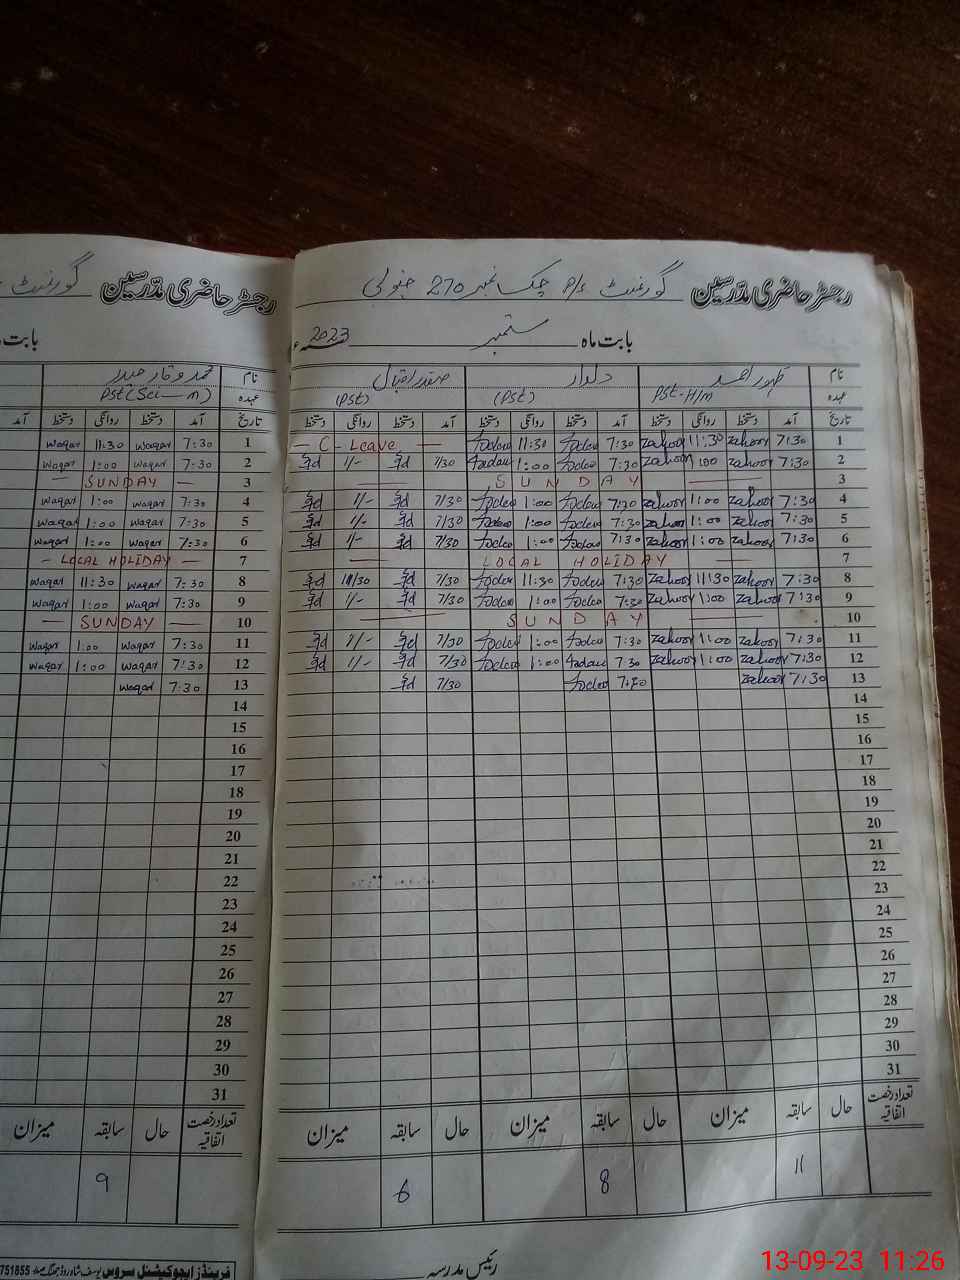 رجسٹر حاضری مدرسین گورنمنٹ P/S چک نمبر 270 جنوبی
بابت ماہ ستمبر 2023ء
نام ظہور احمد دلاور صفدر اقبال
عہدہ Pst-H/m (Pst) (Pst)
تاریخ آمد دستخط روانگی دستخط آمد دستخط روانگی دستخط آمد دستخط روانگی دستخط
1 7:30 zahoor 11:30 zahoor 7:30 11:30 — C-Leave —
2 7:30 zahoor 1:00 zahoor 7:30 1:00 7/30 1/-
3 — SUNDAY —
4 7:30 zahoor 1:00 zahoor 7:30 1:00 7/30 1/-
5 7:30 zahoor 1:00 zahoor 7:30 1:00 7/30 1/-
6 7:30 zahoor 1:00 zahoor 7:30 1:00 7/30 1/-
7 — LOCAL HOLIDAY —
8 7:30 zahoor 11:30 zahoor 7:30 11:30 7/30
9 7:30 zahoor 1:00 zahoor 7:30 1:00 7/30 1/-
10 — SUNDAY —
11 7:30 zahoor 1:00 zahoor 7:30 1:00 7/30 1/-
12 7:30 zahoor 1:00 zahoor 7:30 1:00 7/30 1/-
13 7:30 zahoor 7/30
14
15
16
17
18
19
20
21
22
23
24
25
26
27
28
29
30
31
تعداد رخصت اتفاقیہ حال سابقہ میزان حال سابقہ میزان حال سابقہ میزان
11 8 6
رئیس مدرسہ
رجسٹر حاضری مدرسین گورنمنٹ
بابت
نام محمد وقار حیدر
عہدہ
تاریخ آمد دستخط روانگی دستخط آمد
1 7:30 waqar 11:30 waqar
2 7:30 waqar 1:00 waqar
3 — SUNDAY —
4 7:30 waqar 1:00 waqar
5 7:30 waqar 1:00 waqar
6 7:30 waqar 1:00 waqar
7 — LOCAL HOLIDAY —
8 7:30 waqar 11:30 waqar
9 7:30 waqar 1:00 waqar
10 — SUNDAY —
11 7:30 waqar 1:00 waqar
12 7:30 waqar 1:00 waqar
13 7:30 waqar
14
15
16
17
18
19
20
21
22
23
24
25
26
27
28
29
30
31
تعداد رخصت اتفاقیہ حال سابقہ میزان
9
فرینڈز ایجوکیشنل سروس یوسف شاہ روڈ جھنگ صدر 751855
13-09-23 11:26